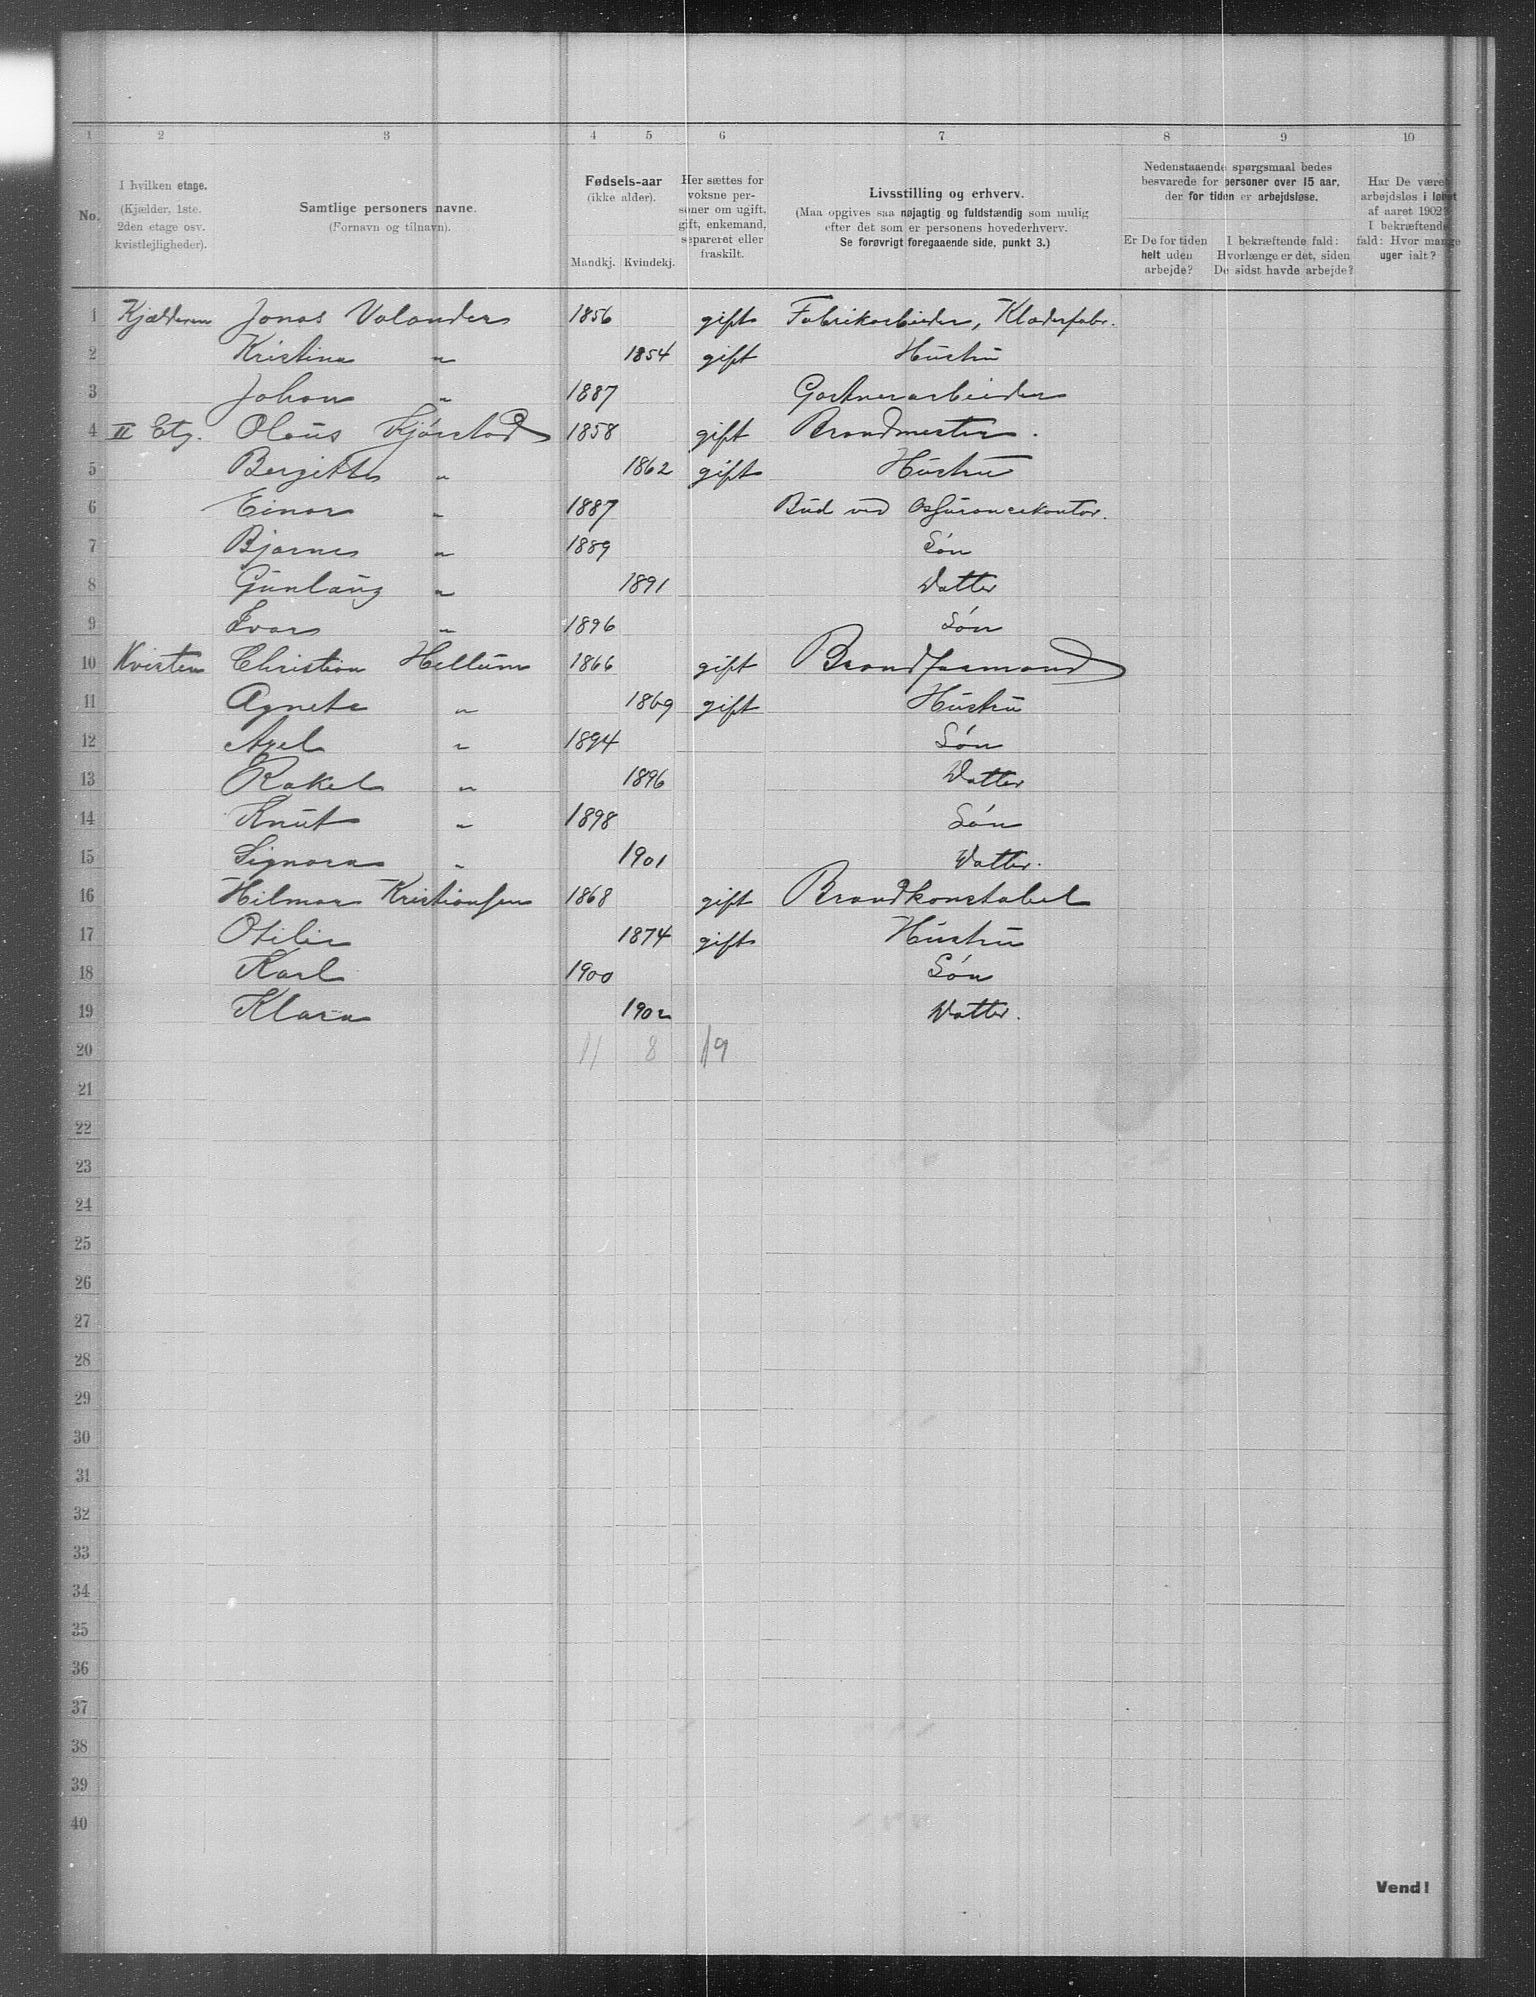 1 2 3 4 5 6 7 8 9 10
No.
I hvilken etage.
(Kjælder, 1ste.
2den etage osv.
kvistlejligheder).
Samtlige personers navne.
(Fornavn og tilnavn).
Fødsels-aar
(ikke alder).
Mandkj. Kvindekj.
Her sættes for
voksne per-
soner om ugift,
gift, enkemand,
separeret eller
fraskilt.
Livsstilling og erhverv.
(Maa opgives saa nøjagtig og fuldstændig som mulig
efter det som er personens hovederhverv.
Se forøvrigt foregaaende side, punkt 3.)
Nedenstaaende spørgsmaal bedes
besvarede for personer over 15 aar,
der for tiden er arbejdsløse.
Er De for tiden
helt uden
arbejde?
I bekræftende fald:
Hvorlænge er det, siden
De sidst havde arbejde?
Har De været
arbejdsløs i løbet
af aaret 1902?
I bekræftende
fald: Hvor mange
uger ialt?
1 Kjælderen Jonas Valander 1856 gift Fabrikarbeider, Klæderfabr.
2 Kristina " 1854 gift Hustru
3 Johan " 1887 Gartnerarbeider
4 II Etg. Olaus Kjørstad 1858 gift Brandmester.
5 Bergitte " 1862 gift Hustru
6 Einar " 1887 Bud ved Assurancekontor.
7 Bjarne " 1889 Søn
8 Gunlaug " 1891 Datter
9 Ivar " 1896 Søn
10 Kvisten Christian Hellum 1866 gift Brandformand
11 Agnete " 1869 gift Hustru
12 Axel " 1894 Søn
13 Rakel " 1896 Datter
14 Knut " 1898 Søn
15 Signora " 1901 Datter.
16 Hilmar Kristiansen 1868 gift Brandkonstabel
17 Otilie 1874 gift Hustru
18 Karl 1900 Søn
19 Klara 1902 Datter.
20 11 8 19
21
22
23
24
25
26
27
28
29
30
31
32
33
34
35
36
37
38
39
40
Vend!